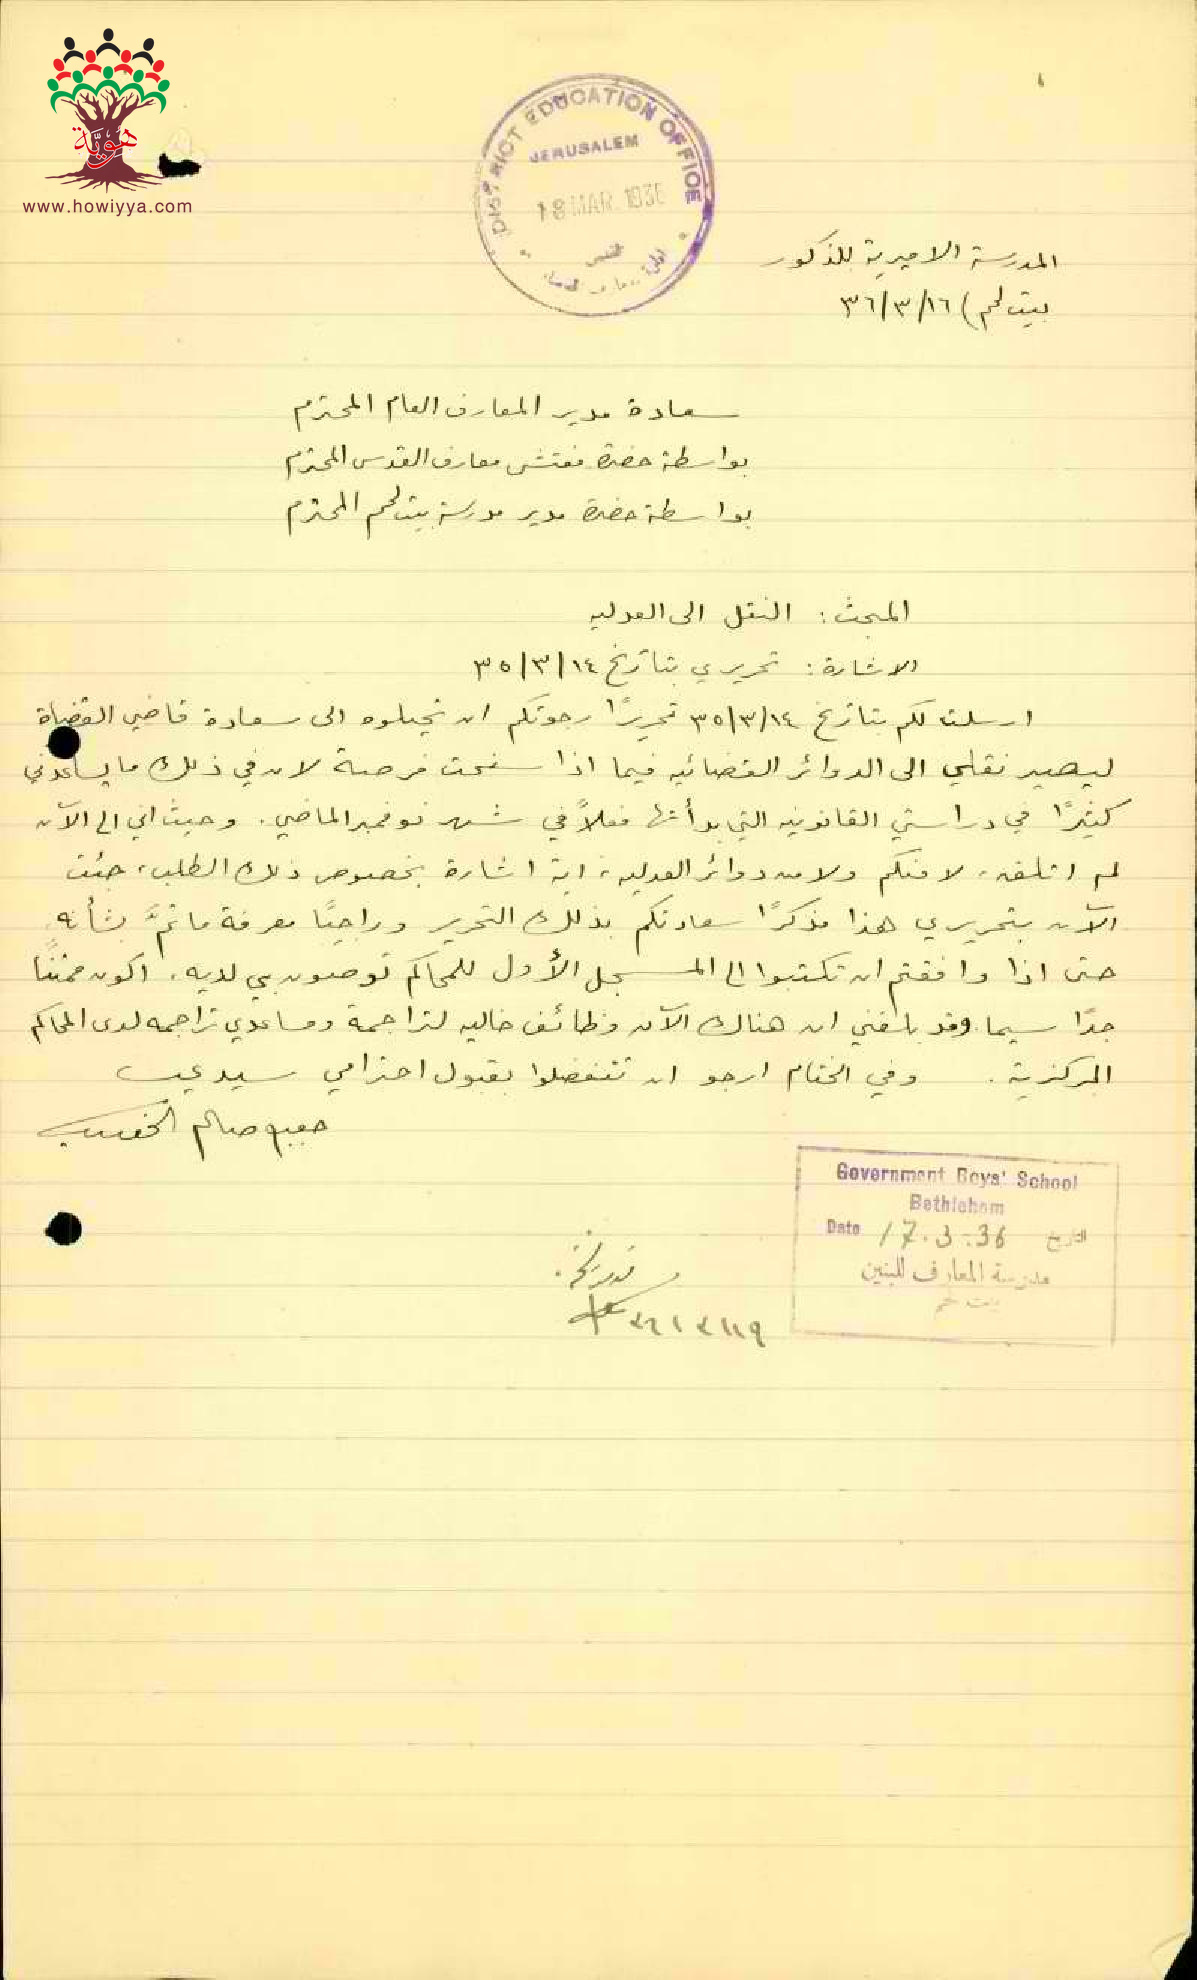 هوية
www.howiyya.com
DISTRICT EDUCATION OFFICE
JERUSALEM
18 MAR. 1936
المدرسة الاميرية للذكور
بيت لحم) ٣٦/٣/١٦
سعادة مدير المعارف العام المحترم
بواسطة حضرة مفتش معارف القدس المحترم
بواسطة حضرة مدير مدرسة بيت لحم المحترم
المبحث: النقل الى العدليه
الاشارة: تحريري بتاريخ ٣٥/٣/١٤
ارسلت لكم بتاريخ ٣٥/٣/١٤ تحريرًا رجوتكم ان تحيلوه الى سعادة قاضي القضاة
ليصير نقلي الى الدوائر القضائيه فيما اذا سنحت فرصة لان في ذلك ما يساعدني
كثيرًا في دراستي القانونيه التي بدأتها فعلاً في شهر نوفمبر الماضي. وحيث اني الى الآن
لم اتلقى، لا منكم ولا من دوائر العدليه، اية اشارة بخصوص ذلك الطلب، جئت
الآن بتحريري هذا مذكرًا سعادتكم بذلك التحرير وراجيًا معرفة ما تمَّ بشأنه.
حتى اذا وافقتم ان تكتبوا الى المسجل الأول للمحاكم توصون بي لديه، اكون ممتنًا
جدًا سيما وقد بلغني ان هناك الآن وظائف خاليه لتراجمة ومساعدي تراجمه لدى المحاكم
المركزية. وفي الختام ارجو ان تتفضلوا بقبول احترامي سيدي
صالم
Government Boys' School
Bethlehem
Date 17.3.36 التاريخ
مدرسة المعارف للبنين
بيت لحم
٣٦/٣/١٩